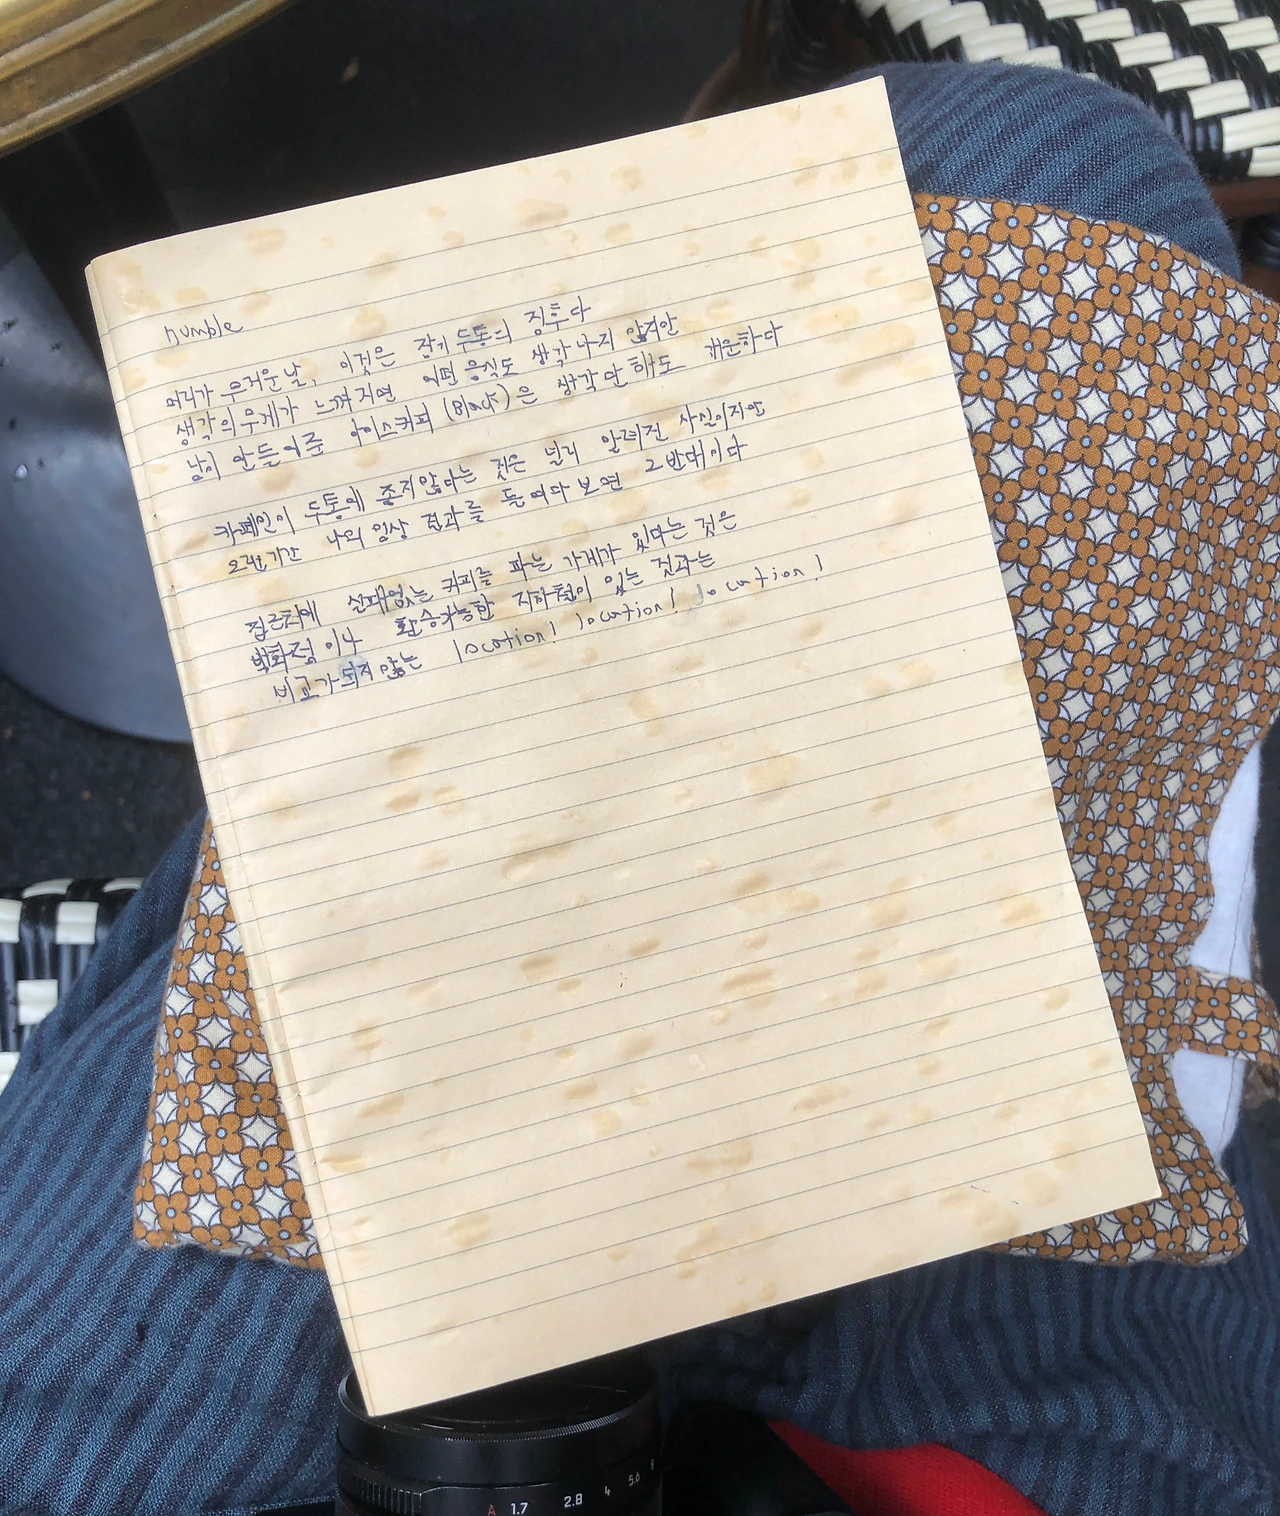 humble
머리가 무거운 날, 이것은 잠시 두통의 징후다
생각의 무게가 느껴지면 어떤 음식도 생각나지 않지만
남이 만들어준 아이스커피 (Black)은 생각만해도 개운하다
카페인이 두통에 좋지않다는 것은 널리 알려진 사실이지만
오랜기간 나의 임상 결과를 들여다보면 그 반대이다
집근처에 실패없는 커피를 파는 가게가 있다는 것은
백화점이나 환승가능한 지하철이 있는 것과는
비교가 되지 않는 location! location! location!
A 1.7 2.8 4 5.6 8